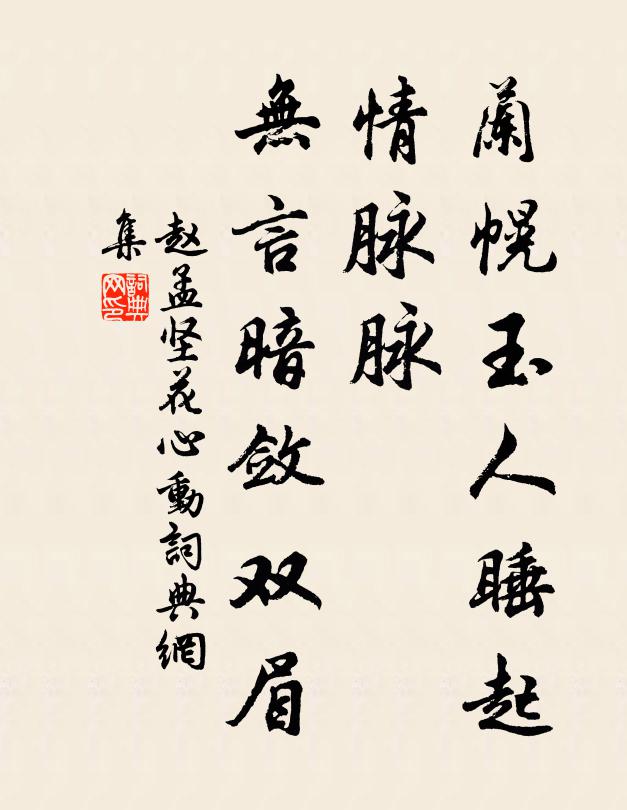 蘭幌玉人睡起
情脉脉
無言暗斂双眉
赵孟坚花心動詞典網
集
詞典
网印